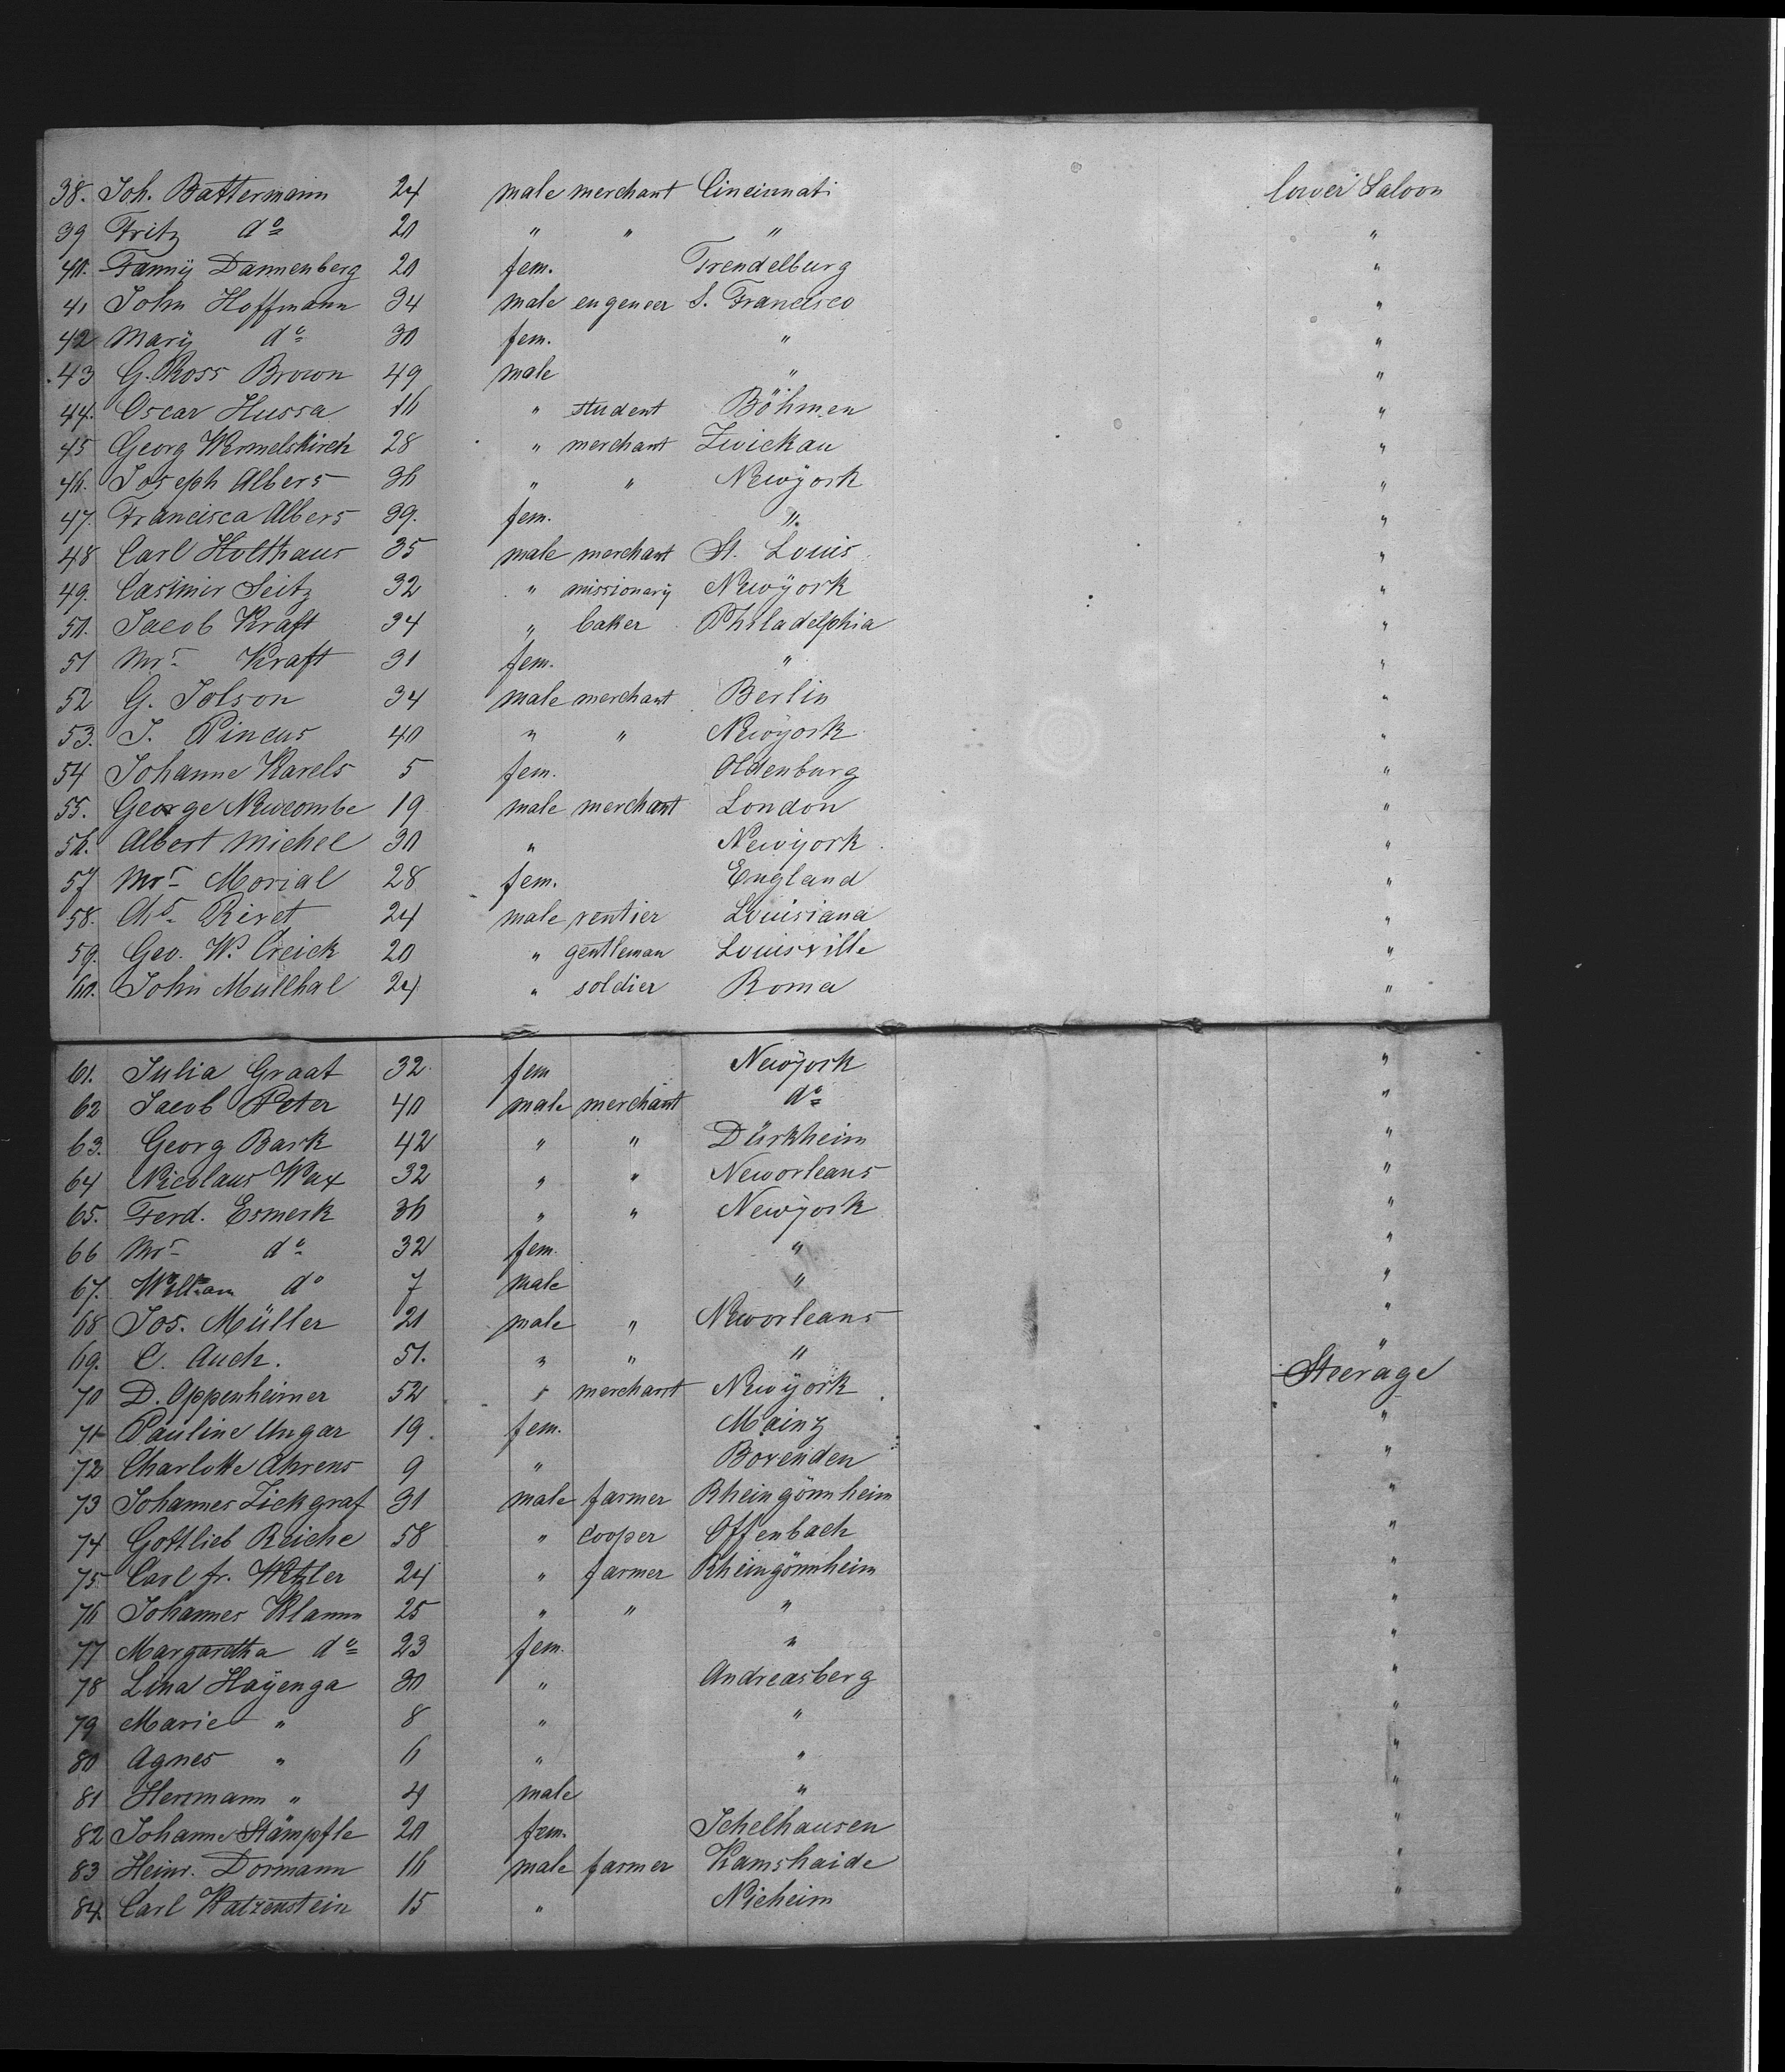 38. Joh. Battermann 24 male merchant Cincinnati lower Saloon
39 Fritz do 20 " " " "
40. Fannÿ Dannenberg 20 fem. Trendelburg "
41 John Hoffmann 34 male engeneer S. Francisco "
42 Marÿ do 30 fem. " "
43 G. Ross Brown 49 male " "
44. Oscar Hussa 16 " student Böhmen "
45 Georg Wermelskirch 28 " merchant Zwickau "
46. Joseph Albers 36 " " Newÿork "
47. Francisca Albers 39. fem. " "
48 Carl Holthaus 35 male merchant St. Louis "
49. Casimir Seitz 32 " missionarÿ Newÿork "
50. Jacob Kraft 34 " baker Philadelphia "
51 Mrs Kraft 31 fem. " "
52 G. Jolson 34 male merchant Berlin "
53. J. Pincus 40 " " Newÿork "
54 Johanne Karels 5 fem. Oldenburg "
55. George Newcombe 19 male merchant London "
56. Albert Michel 30 " Newÿork "
57 Mrs Morial 28 fem. England "
58. Rivet 24 male rentier Louisiana "
59. Geo. W. Creick 20 " gentleman Louisville "
60. John Mullhal 24 " soldier Roma "
61. Julia Graat 32 fem Newÿork "
62 Jacob Peter 40 male merchant do "
63. Georg Bark 42 " " Dürkheim "
64 Nicolaus Wax 32 " " Neworleans "
65. Ferd. Esmerk 36 " " Newÿork "
66 Mrs do 32 fem. " "
67. William do 7 male " "
68 Jos. Müller 21 male " Neworleans "
69. C. Auch. 51. " " " "
70 D. Oppenheimer 52 " merchant Newÿork Steerage
71 Pauline Ungar 19. fem. Mainz "
72 Charlotte Ahrens 9 " Bovenden "
73 Johannes Zickgraf 31 male farmer Rheingönnheim "
74 Gottlieb Reiche 58 " cooper Offenbach "
75 Carl fr. Wetzler 24 " farmer Rheingönnheim "
76 Johannes Klamm 25 " " " "
77 Margaretha do 23 fem. " "
78 Lina Haÿenga 30 " Andreasberg "
79 Marie " 8 " " "
80 Agnes " 6 " " "
81 Hermann " 4 male " "
82 Johanne Stämpfle 20 fem. Ichelhausen "
83 Heinr. Dormann 16 male farmer Kamshaide "
84. Carl Katzenstein 15 " Nieheim "